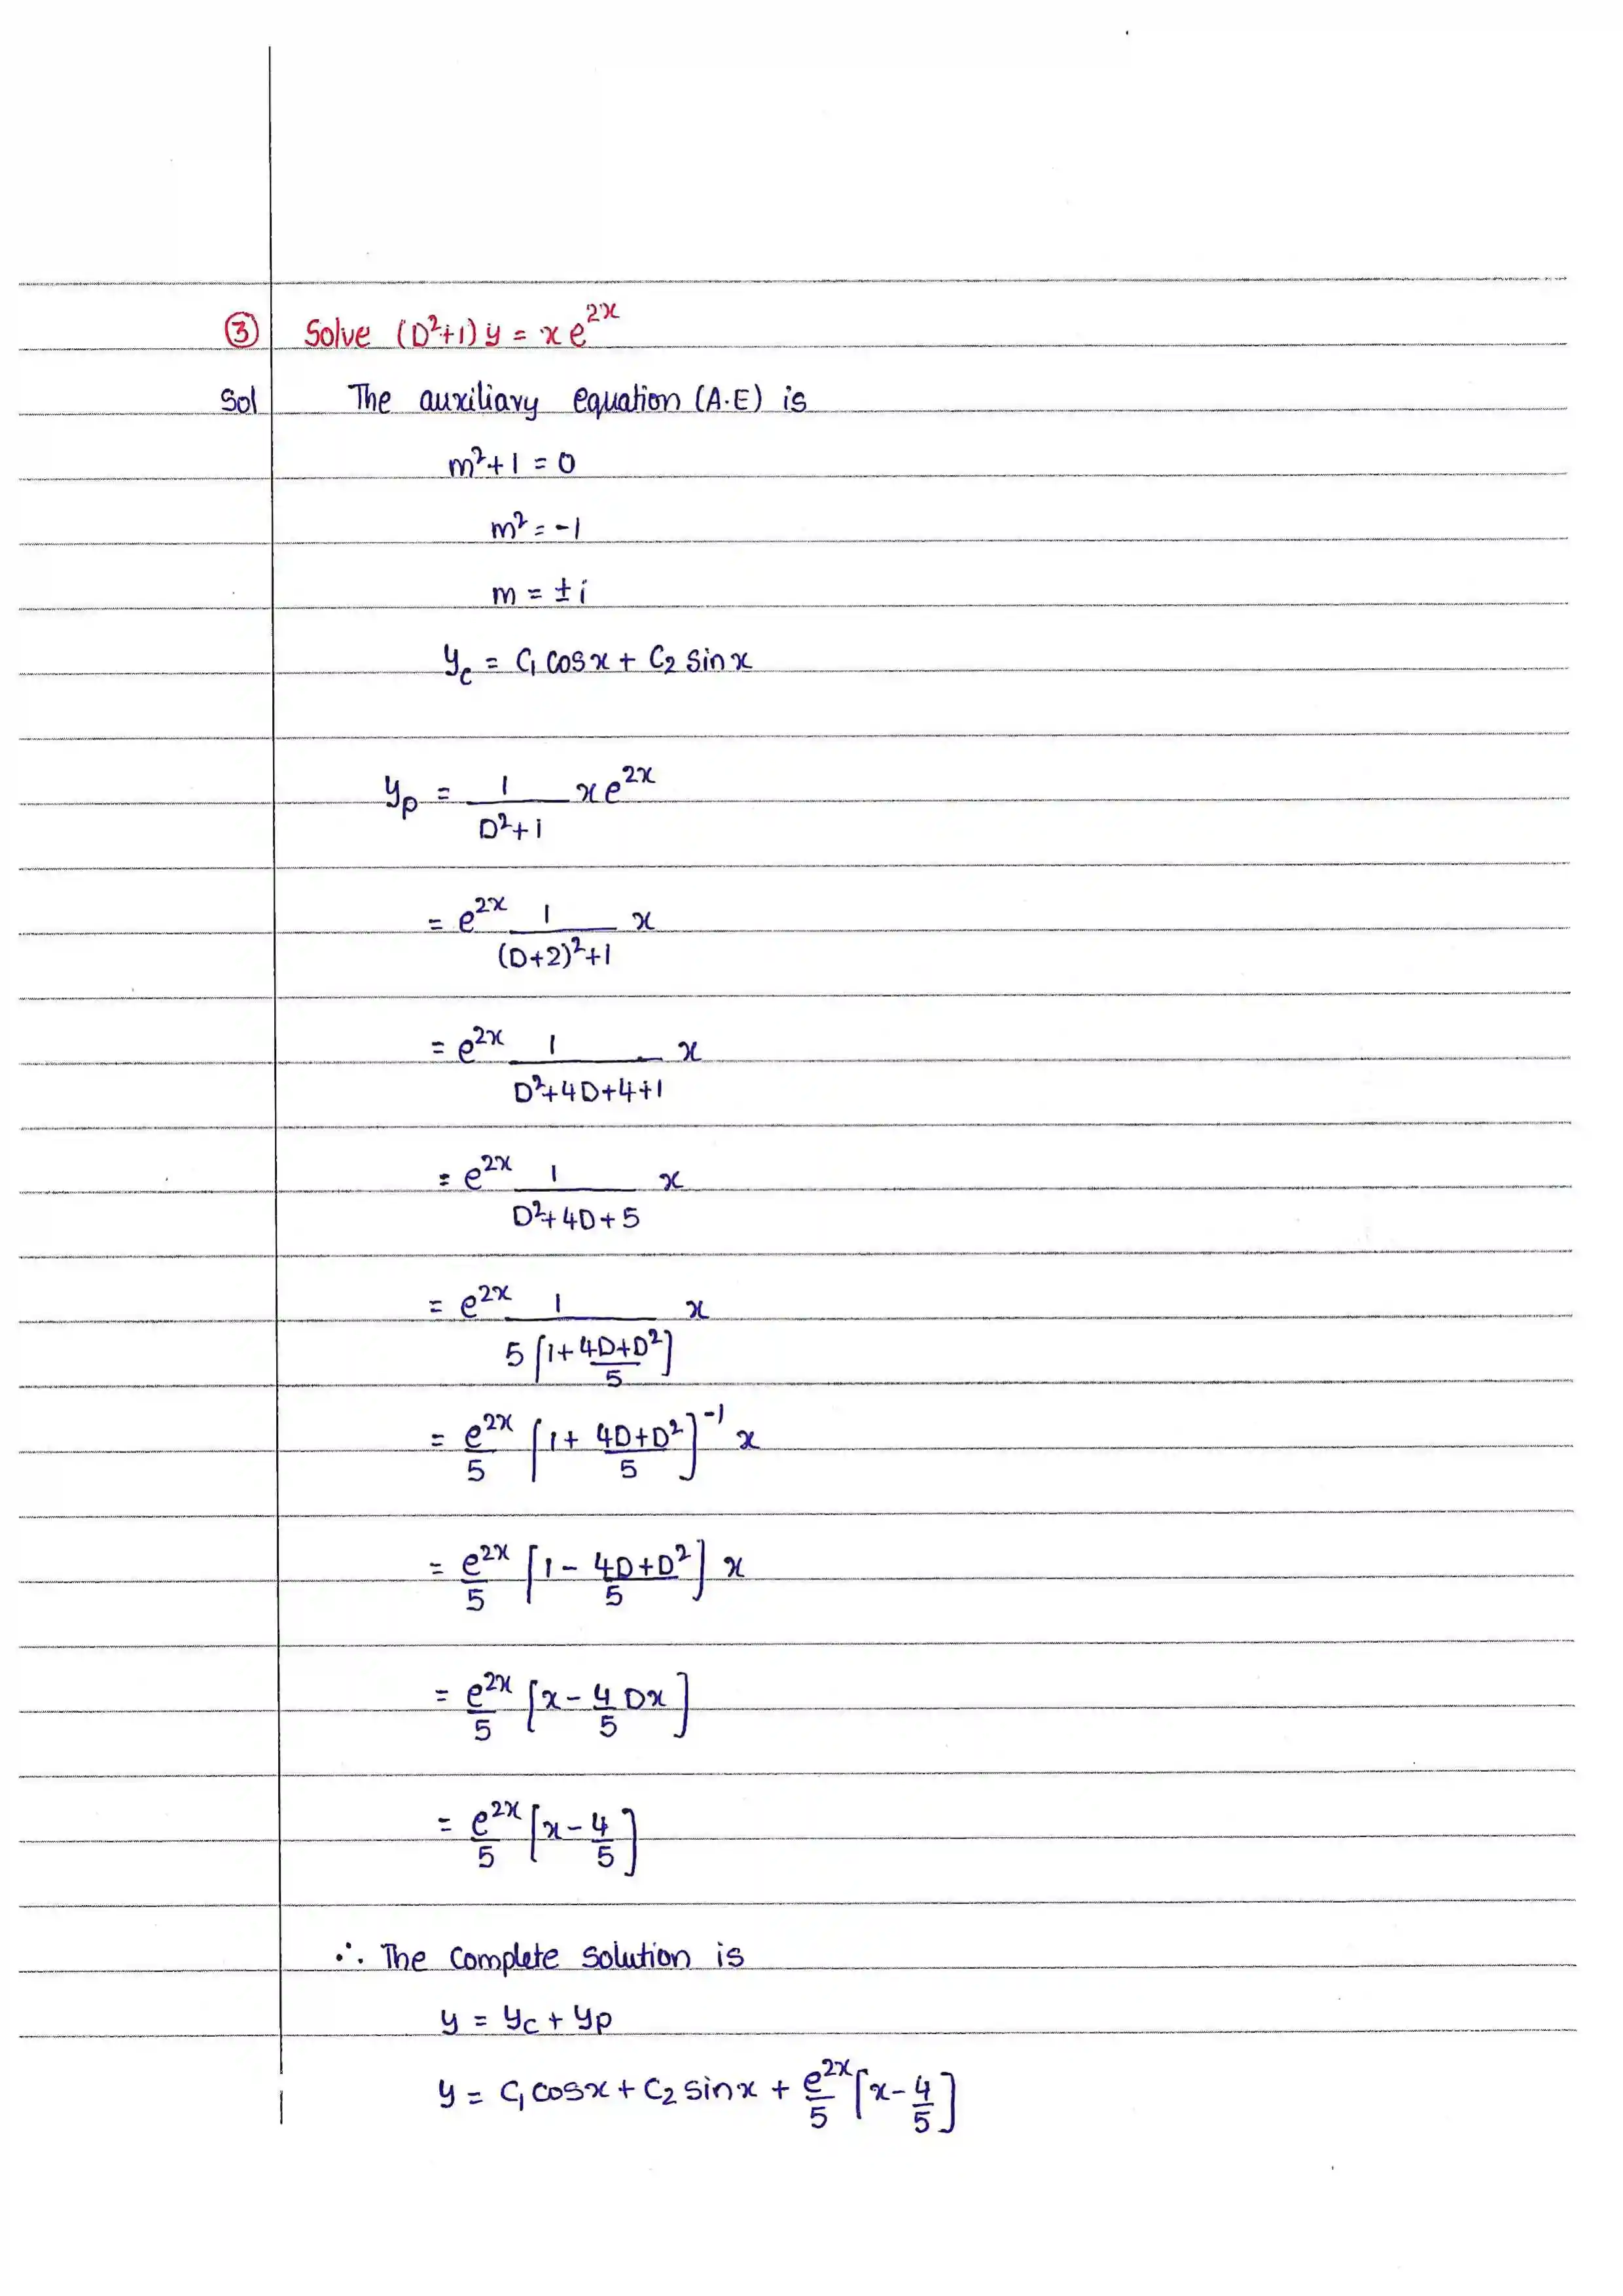 ③ Solve (D²+1) y = x e^{2x}
Sol The auxiliary equation (A.E) is
m²+1 = 0
m² = -1
m = ± i
y_c = C₁ cos x + C₂ sin x
y_p = \frac{1}{D²+1} x e^{2x}
= e^{2x} \frac{1}{(D+2)²+1} x
= e^{2x} \frac{1}{D²+4D+4+1} x
= e^{2x} \frac{1}{D²+4D+5} x
= e^{2x} \frac{1}{5[1+\frac{4D+D²}{5}]} x
= \frac{e^{2x}}{5} [1+ \frac{4D+D²}{5}]^{-1} x
= \frac{e^{2x}}{5} [1 - \frac{4D+D²}{5}] x
= \frac{e^{2x}}{5} [x - \frac{4}{5} Dx]
= \frac{e^{2x}}{5} [x - \frac{4}{5}]
∴ The Complete Solution is
y = y_c + y_p
y = C₁ cos x + C₂ sin x + \frac{e^{2x}}{5} [x - \frac{4}{5}]